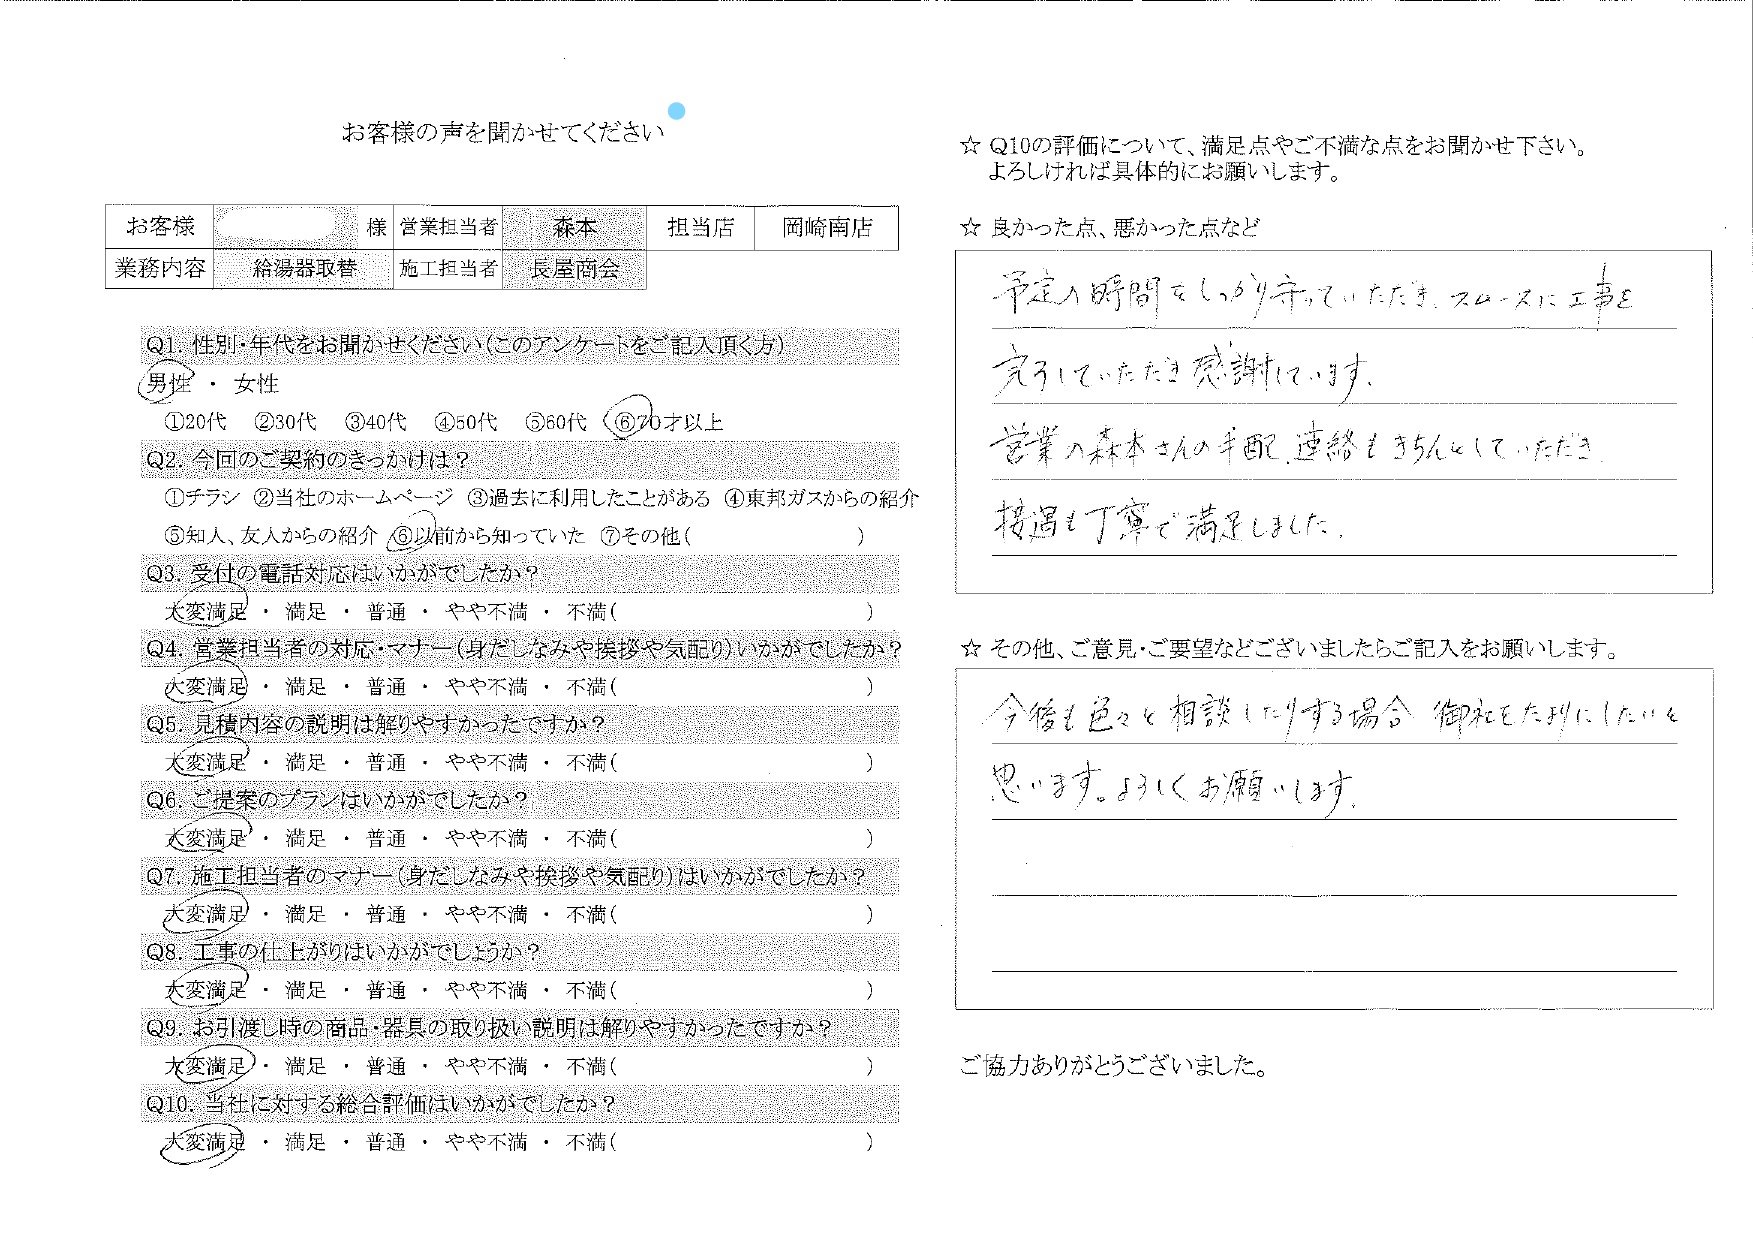 お客様の声を聞かせてください
お客様 様 営業担当者 森本 担当店 岡崎南店
業務内容 給湯器取替 施工担当者 長屋商会
Q1. 性別・年代をお聞かせください(このアンケートをご記入頂く方)
男性 ・ 女性
①20代 ②30代 ③40代 ④50代 ⑤60代 ⑥70才以上
Q2. 今回のご契約のきっかけは？
①チラシ ②当社のホームページ ③過去に利用したことがある ④東邦ガスからの紹介
⑤知人、友人からの紹介 ⑥以前から知っていた ⑦その他( )
Q3. 受付の電話対応はいかがでしたか？
大変満足 ・ 満足 ・ 普通 ・ やや不満 ・ 不満( )
Q4. 営業担当者の対応・マナー(身だしなみや挨拶や気配り)いかがでしたか？
大変満足 ・ 満足 ・ 普通 ・ やや不満 ・ 不満( )
Q5. 見積内容の説明は解りやすかったですか？
大変満足 ・ 満足 ・ 普通 ・ やや不満 ・ 不満( )
Q6. ご提案のプランはいかがでしたか？
大変満足 ・ 満足 ・ 普通 ・ やや不満 ・ 不満( )
Q7. 施工担当者のマナー(身だしなみや挨拶や気配り)はいかがでしたか？
大変満足 ・ 満足 ・ 普通 ・ やや不満 ・ 不満( )
Q8. 工事の仕上がりはいかがでしょうか？
大変満足 ・ 満足 ・ 普通 ・ やや不満 ・ 不満( )
Q9. お引渡し時の商品・器具の取り扱い説明は解りやすかったですか？
大変満足 ・ 満足 ・ 普通 ・ やや不満 ・ 不満( )
Q10. 当社に対する総合評価はいかがでしたか？
大変満足 ・ 満足 ・ 普通 ・ やや不満 ・ 不満( )
☆ Q10の評価について、満足点やご不満な点をお聞かせ下さい。
よろしければ具体的にお願いします。
☆ 良かった点、悪かった点など
予定の時間をしっかり守っていただき、スムースに工事を
完了していただき感謝しています。
営業の森本さんの手配、連絡もきちんとしていただき
接遇も丁寧で満足しました。
☆ その他、ご意見・ご要望などございましたらご記入をお願いします。
今後も色々と相談したりする場合 御社をたよりにしたいと
思います。よろしくお願いします。
ご協力ありがとうございました。